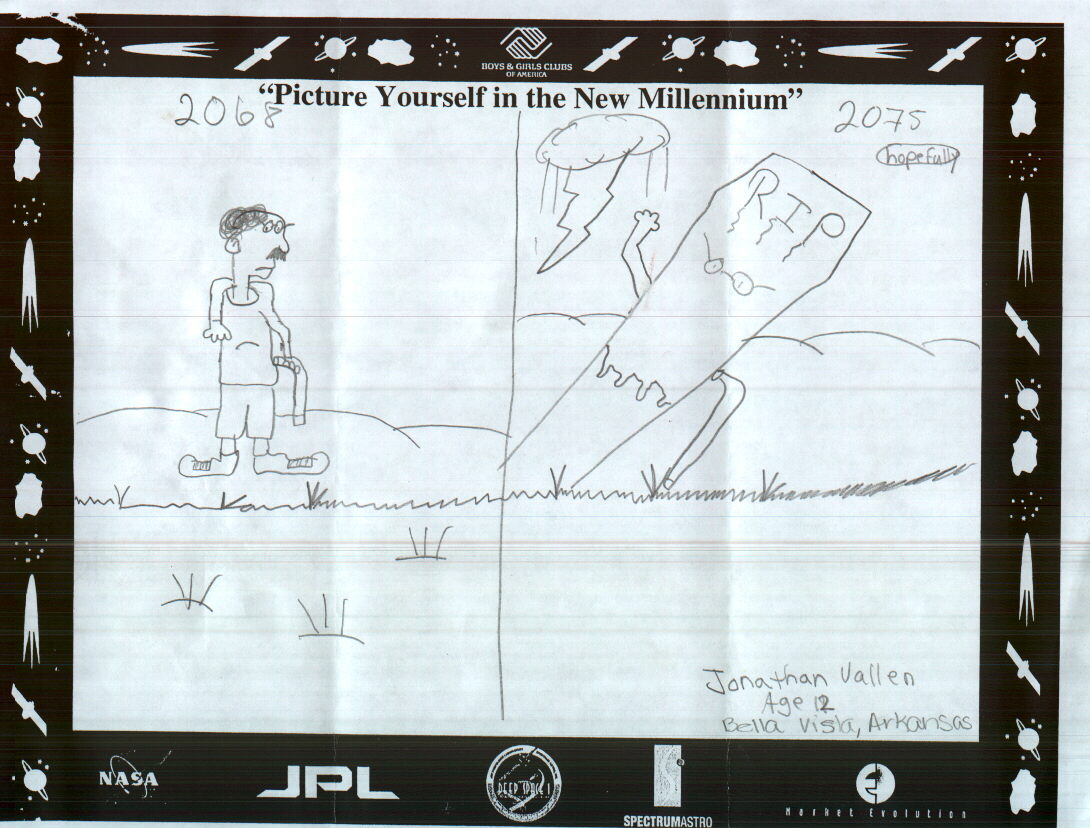 BOYS & GIRLS CLUBS
OF AMERICA
“Picture Yourself in the New Millennium”
2068
2075
hopefully
RIP
Jonathan Vallen
Age 12
Bella Vista, Arkansas
NASA
JPL
DEEP SPACE 1
SPECTRUMASTRO
Market Evolution